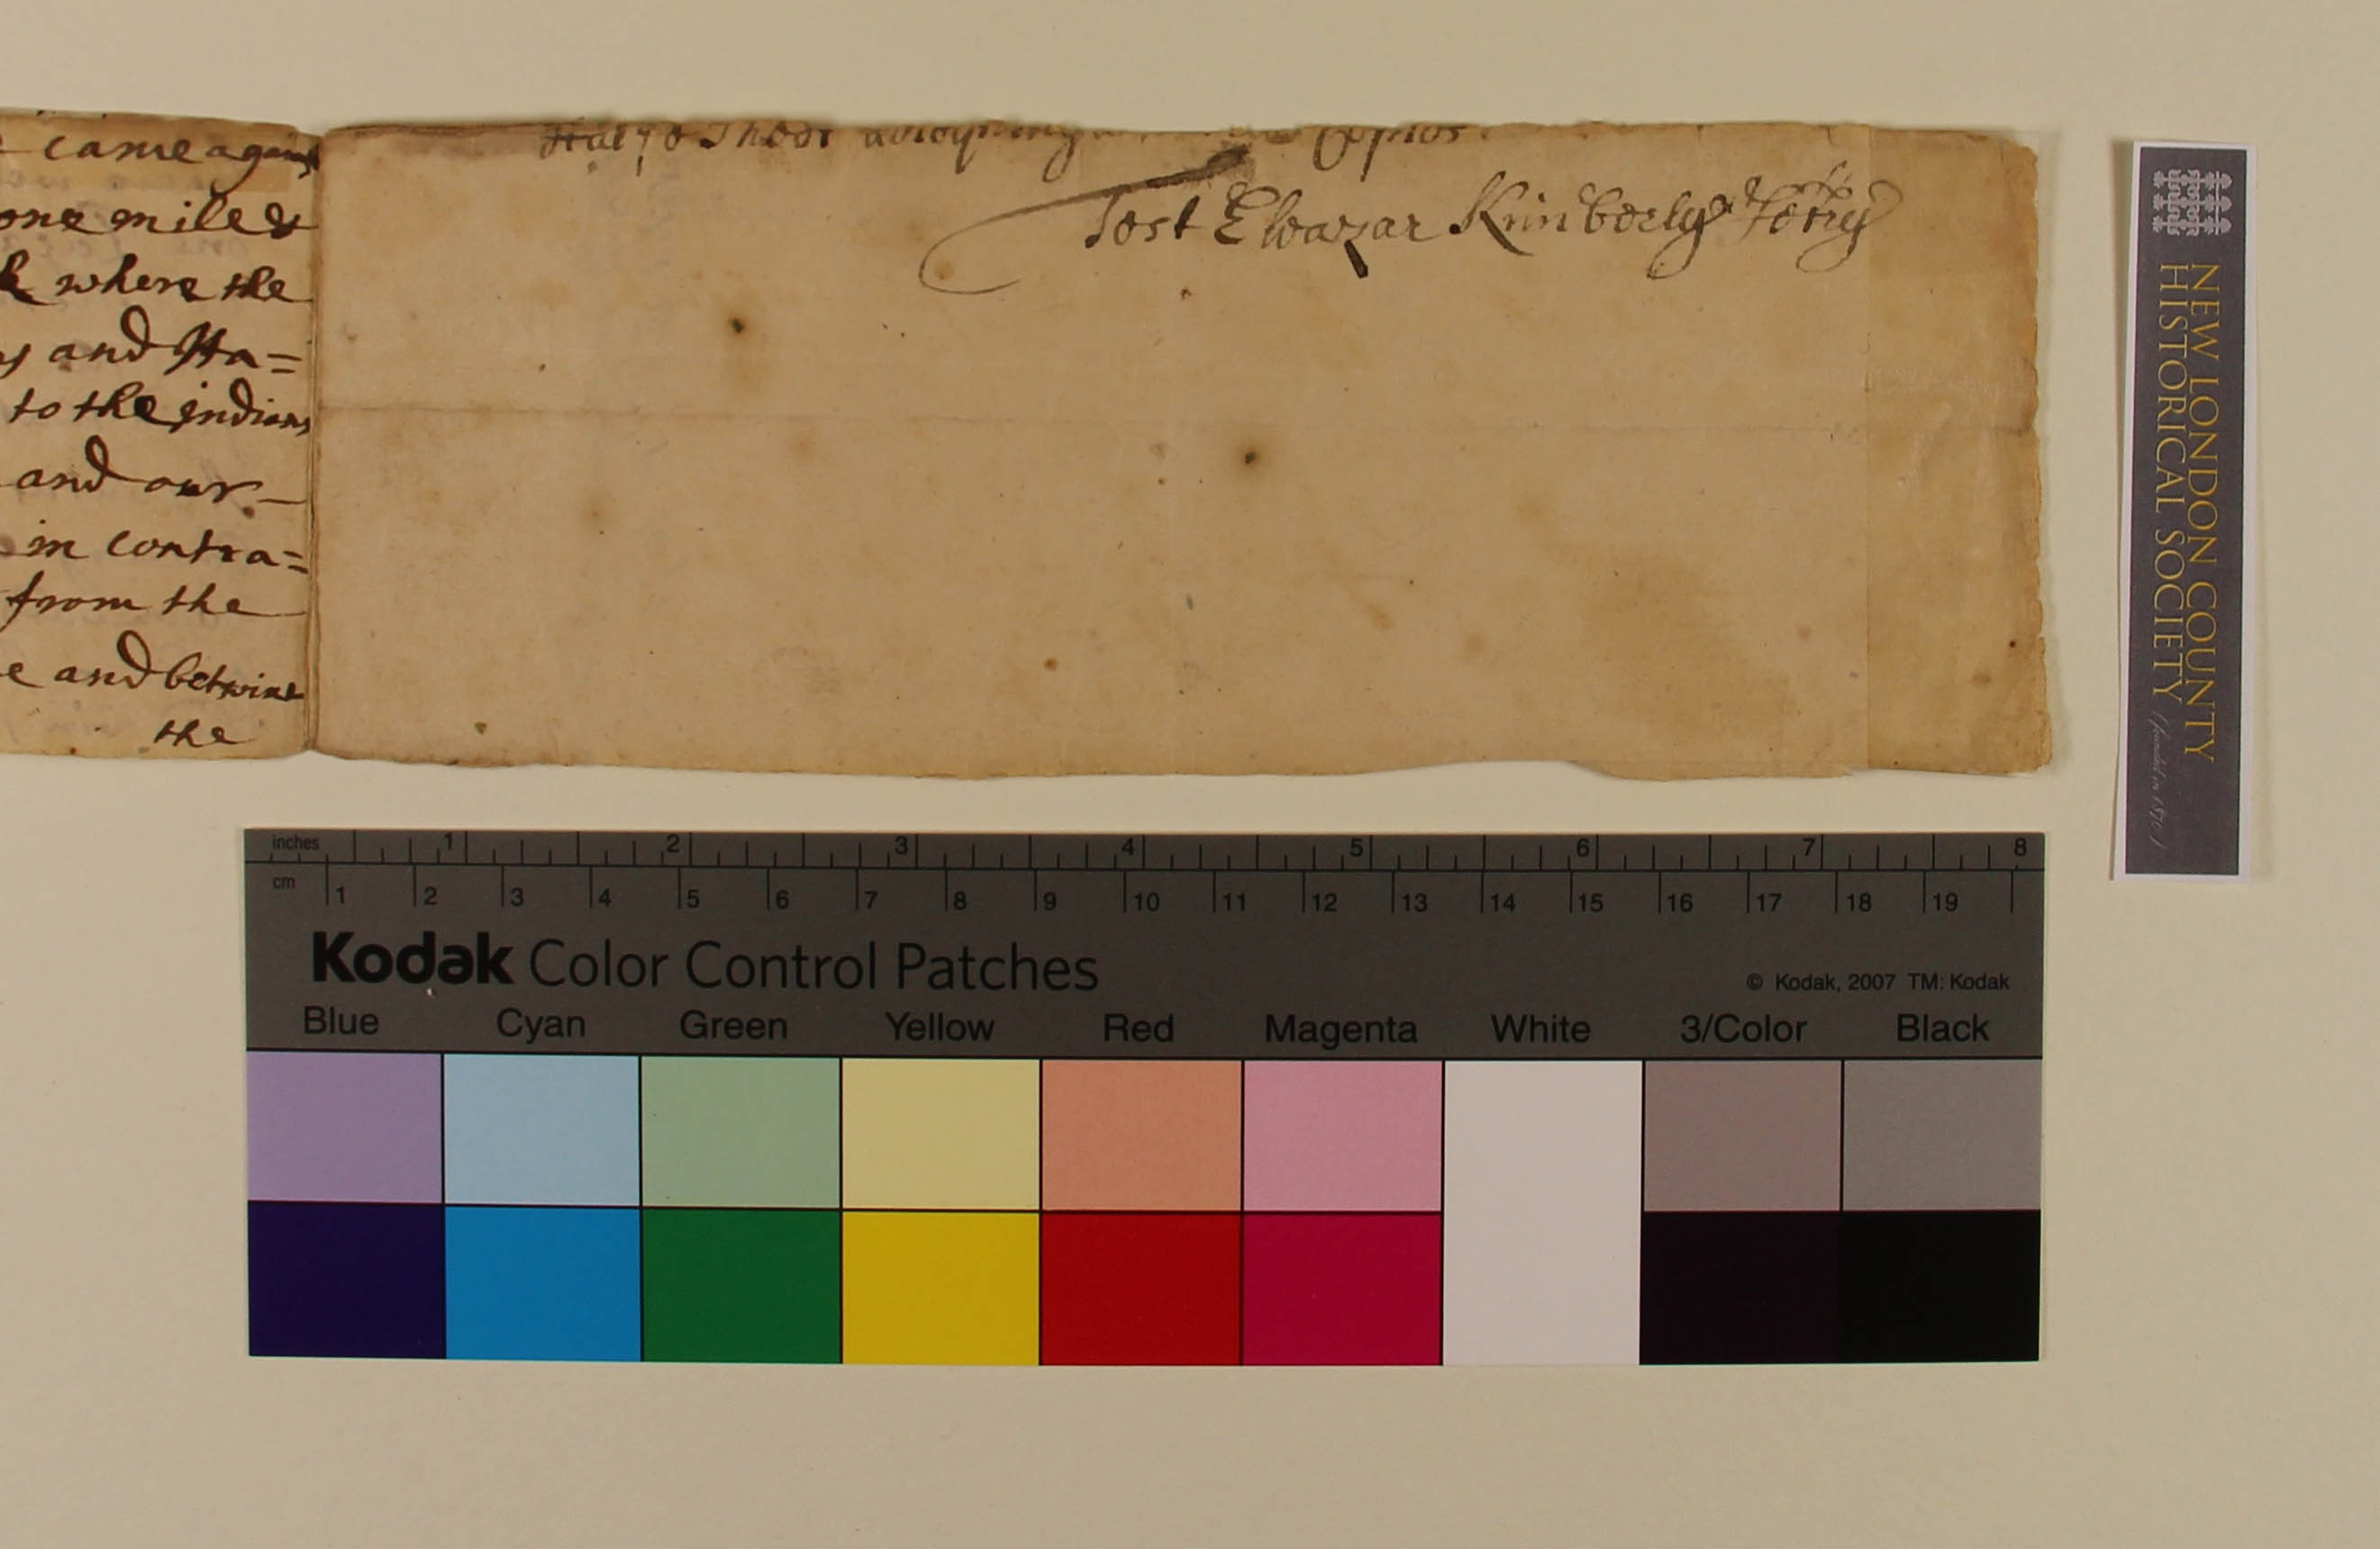 came against
one mile &
where the
and Ha=
to the indians
and our
in contra=
from the
and betwine
the
Test Eleazar Kimberly Secretry
NEW LONDON COUNTY
HISTORICAL SOCIETY (founded in 1870)
inches 1 2 3 4 5 6 7 8
cm 1 2 3 4 5 6 7 8 9 10 11 12 13 14 15 16 17 18 19
Kodak Color Control Patches
© Kodak, 2007 TM: Kodak
Blue Cyan Green Yellow Red Magenta White 3/Color Black